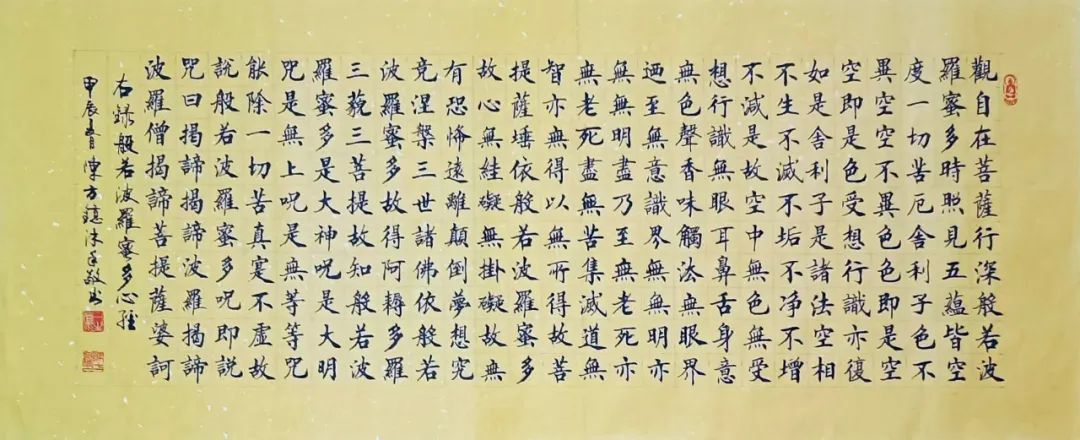 觀自在菩薩行深般若波
羅蜜多時照見五蘊皆空
度一切苦厄舍利子色不
異空空不異色色即是空
空即是色受想行識亦復
如是舍利子是諸法空相
不生不滅不垢不净不增
不減是故空中無色無受
想行識無眼耳鼻舌身意
無色聲香味觸法無眼界
迺至無意識界無無明亦
無無明盡乃至無老死亦
無老死盡無苦集滅道無
智亦無得以無所得故菩
提薩埵依般若波羅蜜多
故心無絓礙無掛礙故無
有恐怖遠離顛倒夢想究
竟涅槃三世諸佛依般若
波羅蜜多故得阿耨多羅
三藐三菩提故知般若波
羅蜜多是大神咒是大明
咒是無上咒是無等等咒
能除一切苦真寔不虛故
說般若波羅蜜多咒即説
咒曰揭諦揭諦波羅揭諦
波羅僧揭諦菩提薩婆訶
右録般若波羅蜜多心經
甲辰春陳方沐手敬書